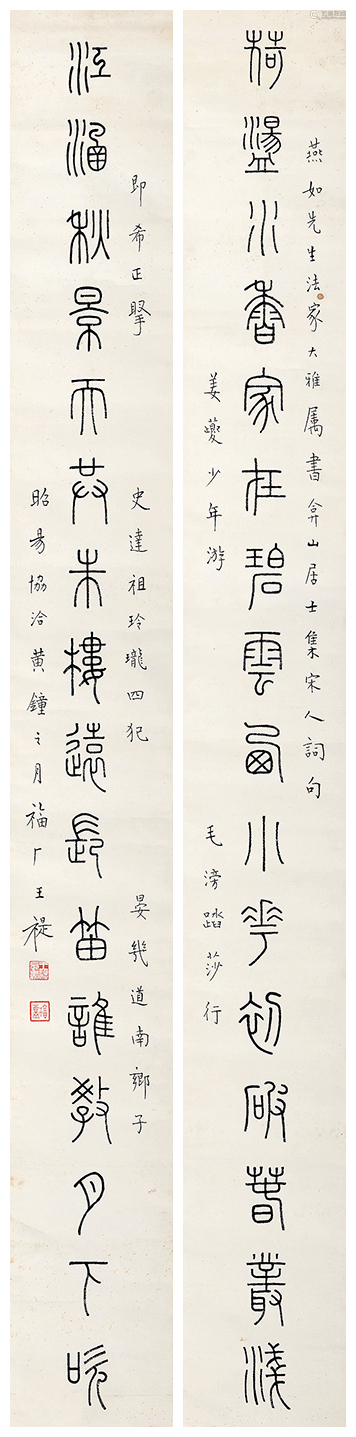 燕如先生法家大雅属書弇山居士集宋人詞句
荷盪水香家在碧雲西小花初破春叢淺
姜夔少年游
毛滂踏莎行
即希正掔
史達祖玲瓏四犯
晏幾道南鄉子
江涵秋景天共朱樓遠長笛誰教月下吹
昭昜協洽黄鐘之月福厂王禔